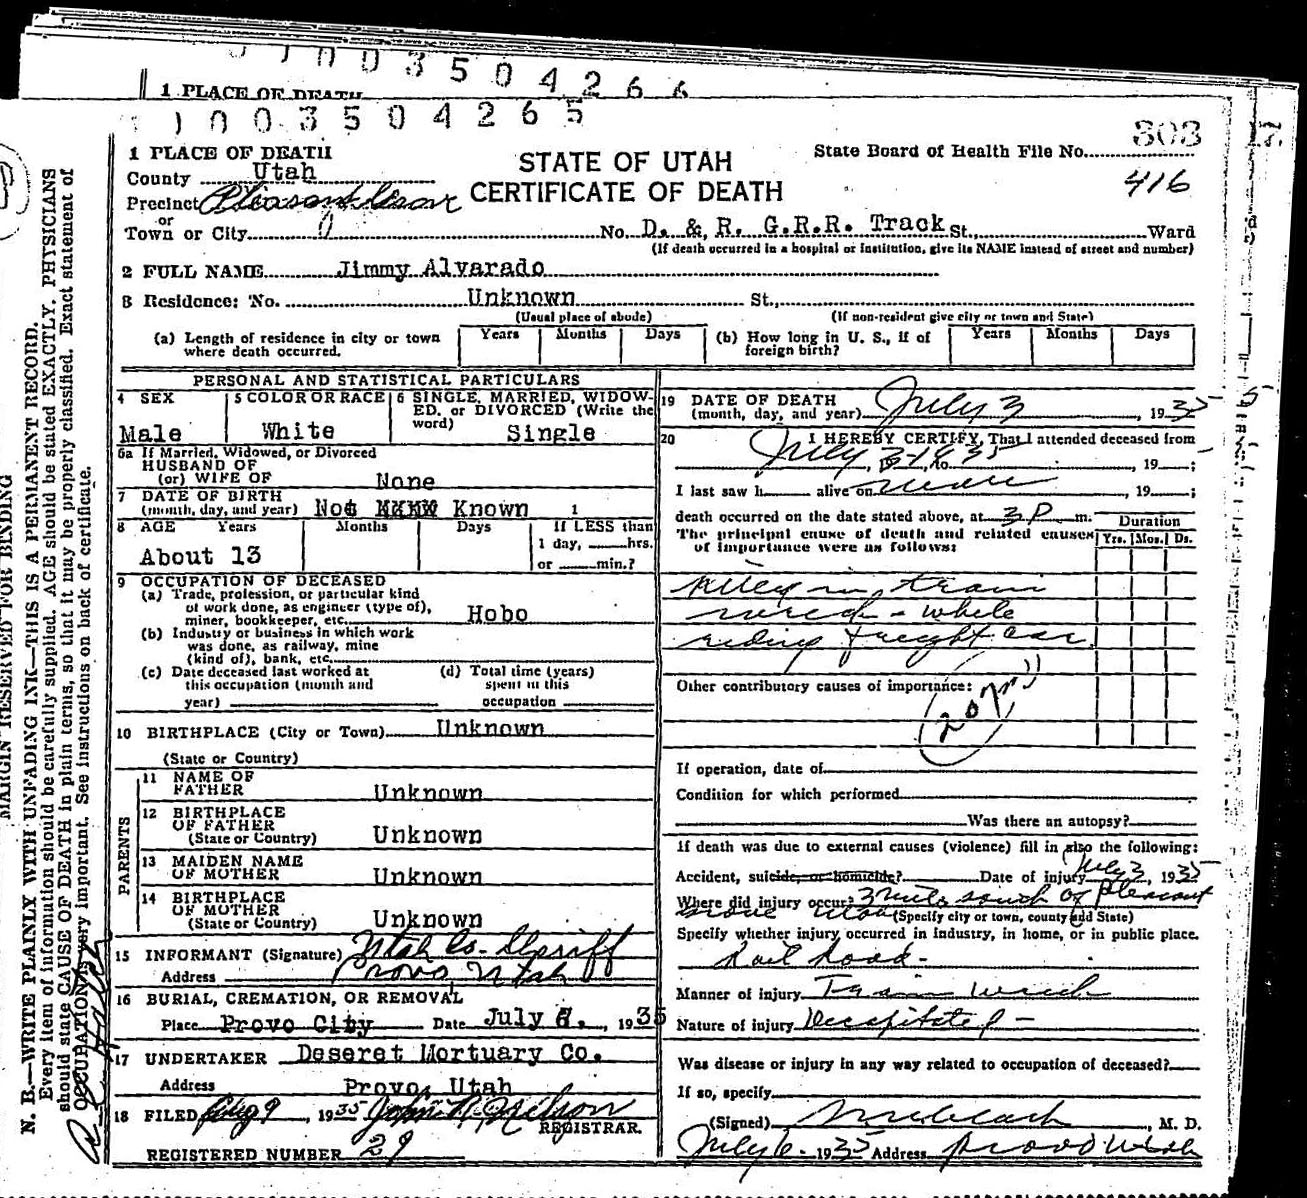 1003504266
1 PLACE OF DEATH
1003504265
808
17.
1 PLACE OF DEATH
STATE OF UTAH
State Board of Health File No.
County Utah
CERTIFICATE OF DEATH
416
Precinct Pleasant Grove
or
Town or City No. D. & R. G.R.R. Track St., Ward
(If death occurred in a hospital or institution, give its NAME instead of street and number)
2 FULL NAME Jimmy Alvarado
3 Residence: No. Unknown St.,
(Usual place of abode) (If non-resident give city or town and State)
(a) Length of residence in city or town where death occurred. Years Months Days (b) How long in U. S., if of foreign birth? Years Months Days
PERSONAL AND STATISTICAL PARTICULARS
4 SEX 5 COLOR OR RACE 6 SINGLE, MARRIED, WIDOW-
ED, or DIVORCED (Write the
word)
Male White Single
6a If Married, Widowed, or Divorced
HUSBAND OF
(or) WIFE OF None
7 DATE OF BIRTH
(month, day, and year) Not Known
8 AGE Years Months Days If LESS than
1 day, hrs.
About 13 or min.?
9 OCCUPATION OF DECEASED
(a) Trade, profession, or particular kind
of work done, as engineer (type of),
miner, bookkeeper, etc. Hobo
(b) Industry or business in which work
was done, as railway, mine
(kind of), bank, etc.
(c) Date deceased last worked at (d) Total time (years)
this occupation (month and spent in this
year) occupation
10 BIRTHPLACE (City or Town) Unknown
(State or Country)
PARENTS
11 NAME OF
FATHER Unknown
12 BIRTHPLACE
OF FATHER
(State or Country) Unknown
13 MAIDEN NAME
OF MOTHER Unknown
14 BIRTHPLACE
OF MOTHER
(State or Country) Unknown
15 INFORMANT (Signature) Utah Co. Sheriff
Address Provo Utah
16 BURIAL, CREMATION, OR REMOVAL
Place Provo City Date July 6, 1935
17 UNDERTAKER Deseret Mortuary Co.
Address Provo, Utah
18 FILED Aug 9, 1935 John R. Neilson
REGISTRAR.
REGISTERED NUMBER 29
19 DATE OF DEATH
(month, day, and year) July 3, 1935
20 I HEREBY CERTIFY, That I attended deceased from
July 3 1935, 19 ;
I last saw h alive on never, 19 ;
death occurred on the date stated above, at 3 P m.
The principal cause of death and related causes
of importance were as follows:
Duration
Yrs. Mos. Ds.
Killed in train
wreck - while
riding freight car
Other contributory causes of importance:
If operation, date of
Condition for which performed
Was there an autopsy?
If death was due to external causes (violence) fill in also the following:
Accident, suicide, or homicide? Date of injury July 3, 1935
Where did injury occur? 3 miles south of Pleasant
Grove Utah (Specify city or town, county and State)
Specify whether injury occurred in industry, in home, or in public place.
Rail Road -
Manner of injury Train Wreck
Nature of injury Decapitated -
Was disease or injury in any way related to occupation of deceased?
If so, specify
(Signed) , M. D.
July 6 - 1935 Address Provo Utah
MARGIN RESERVED FOR BINDING
N. B.—WRITE PLAINLY WITH UNFADING INK—THIS IS A PERMANENT RECORD.
Every item of information should be carefully supplied. AGE should be stated EXACTLY. PHYSICIANS
should state CAUSE OF DEATH in plain terms, so that it may be properly classified. Exact statement of
OCCUPATION very important. See instructions on back of certificate.